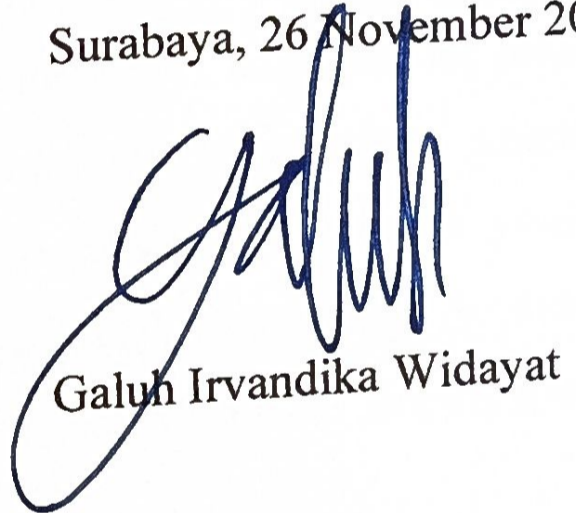 Surabaya, 26 November 20
galuh
Galuh Irvandika Widayat